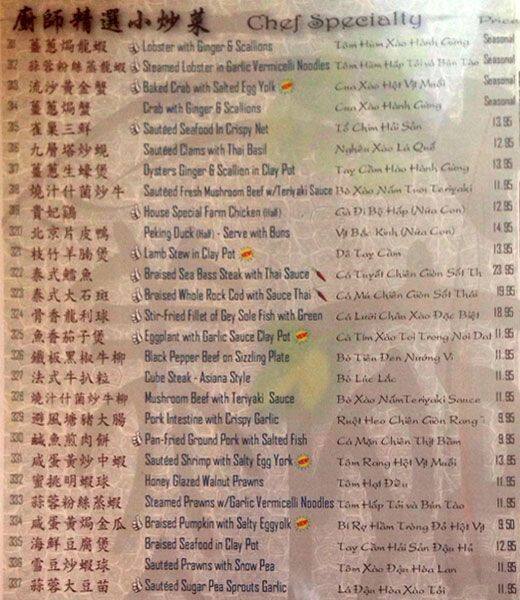 廚師精選小炒菜 Chef Specialty Price
311 薑蔥焗龍蝦 Lobster with Ginger & Scallions Tôm Hùm Xào Hành Gừng Seasonal
312 蒜蓉粉絲蒸龍蝦 Steamed Lobster in Garlic Vermicelli Noodles Tôm Hùm Hấp Tỏi và Bún Tào Seasonal
313 流沙黃金蟹 Baked Crab with Salted Egg Yolk NEW Cua Xào Hột Vịt Muối Seasonal
314 薑蔥焗蟹 Crab with Ginger & Scallions Cua Xào Hành Gừng Seasonal
315 雀巢三鮮 Sautéed Seafood In Crispy Net Tổ Chim Hải Sản 13.95
316 九層塔炒蜆 Sautéed Clams with Thai Basil Nghêu Xào Lá Quế 12.95
317 薑蔥生蠔煲 Oysters Ginger & Scallion in Clay Pot Tay Cầm Hào Hành Gừng 13.95
318 燒汁什菌炒牛 Sautéed Fresh Mushroom Beef w/Teriyaki Sauce Bò Xào Nấm Tươi Teriyaki 11.95
319 貴妃鷄 House Special Farm Chicken (Half) Gà Đi Bộ Hấp (Nửa Con) 12.95
320 北京片皮鴨 Peking Duck (Half) - Serve with Buns Vịt Bắc Kinh (Nửa Con) 14.95
321 枝竹羊腩煲 Lamb Stew in Clay Pot NEW Dê Tay Cầm 13.95
322 泰式鱈魚 Braised Sea Bass Steak with Thai Sauce Cá Tuyết Chiên Giòn Sốt Th 23.95
323 泰式大石斑 Braised Whole Rock Cod with Sauce Thai Cá Mú Chiên Giòn Sốt Thái 19.95
324 骨香龍利球 Stir-Fried Fillet of Gey Sole Fish with Green Cá Lưỡi Chân Xào Đặc Biệt 18.95
325 魚香茄子煲 Eggplant with Garlic Sauce Clay Pot NEW Cà Tím Xào Tỏi Trong Nồi Đất 11.95
326 鐵板黑椒牛柳 Black Pepper Beef on Sizzling Plate Bò Tiêu Đen Nướng Vỉ 11.95
327 法式牛扒粒 Cube Steak - Asiana Style Bò Lúc Lắc 11.95
328 燒汁什菌炒牛柳 Mushroom Beef with Teriyaki Sauce Bò Xào Nấm Teriyaki Sauce 11.95
329 避風塘豬大腸 Pork Intestine with Crispy Garlic Ruột Heo Chiên Giòn Rang 9.95
330 鹹魚煎肉餅 Pan-fried Ground Pork with Salted Fish Cá Mặn Chiên Thịt Bằm 9.95
331 咸蛋黃炒中蝦 Sautéed Shrimp with Salty Egg York NEW Tôm Rang Hột Vịt Muối 13.95
332 蜜桃明蝦球 Honey Glazed Walnut Prawns Tôm Hạt Điều 11.95
333 蒜蓉粉絲蒸蝦 Steamed Prawns w/Garlic Vermicelli Noodles Tôm Hấp Tỏi và Bún Tào 11.95
334 咸蛋黃焗金瓜 Braised Pumpkin with Salty Eggyolk NEW Bí Rợ Hầm Tròng Đỏ Hột Vịt 9.50
335 海鮮豆腐煲 Braised Seafood in Clay Pot Tay Cầm Hải Sản Đậu Hủ 12.95
336 雪豆炒蝦球 Sautéed Prawns with Snow Pea Tôm Xào Đậu Hòa Lan 11.95
337 蒜蓉大豆苗 Sautéed Sugar Pea Sprouts Garlic Lá Đậu Hòa Xào Tỏi 11.95